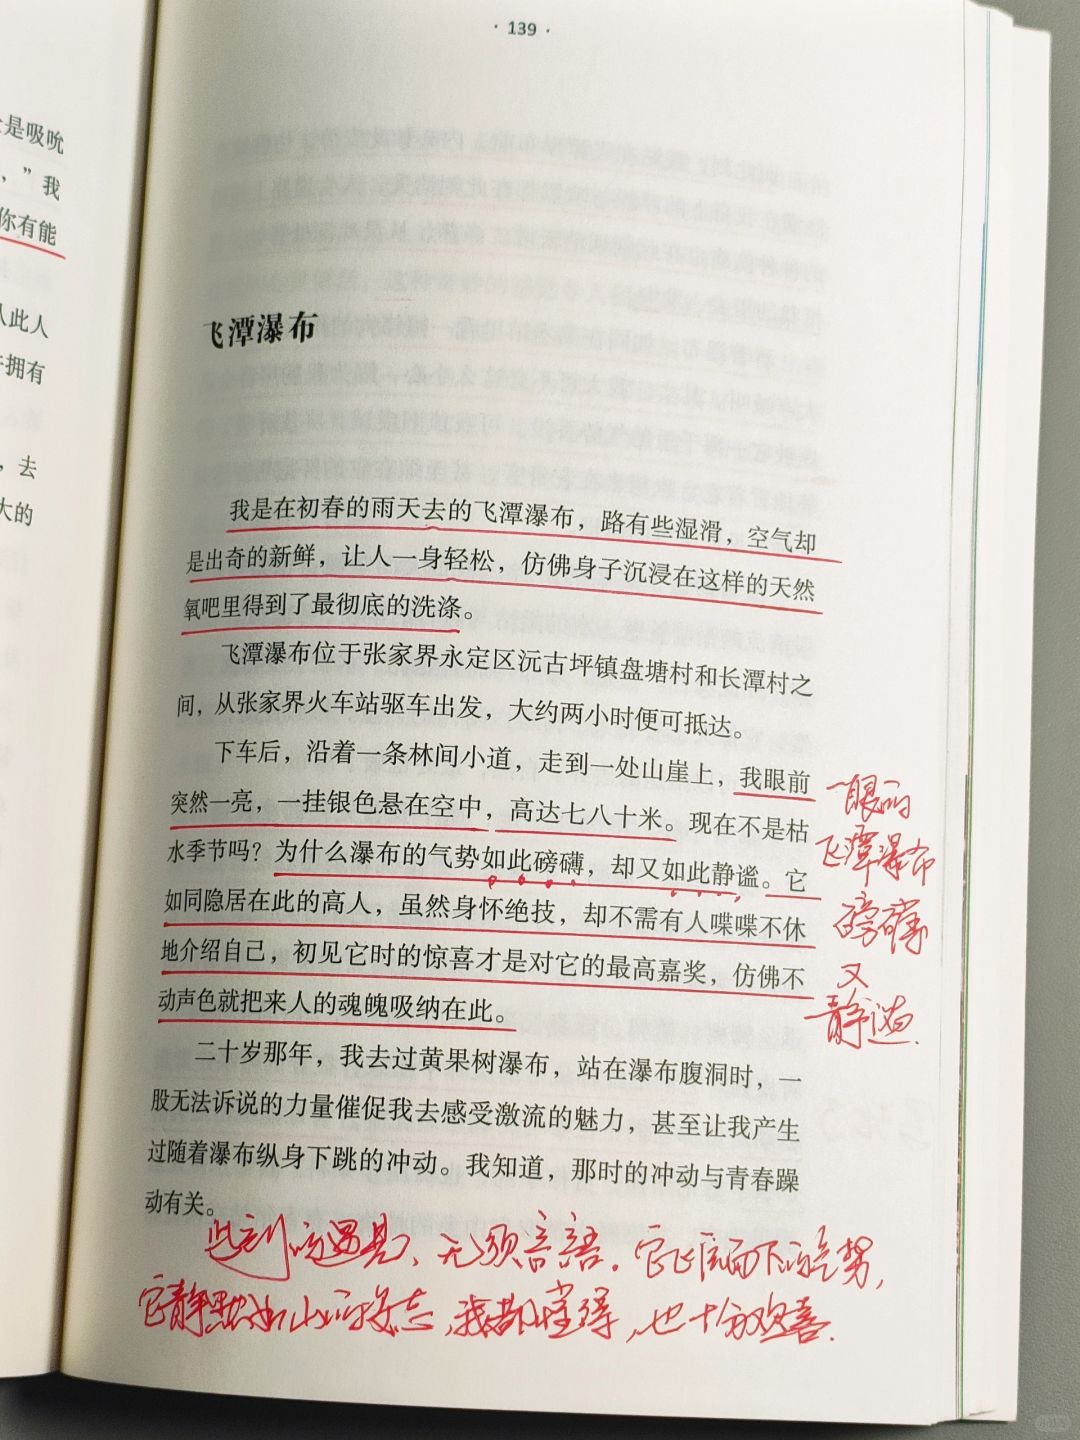 · 139 ·
是吸吮
，”我
你有能
人此人
拥有
，去
大的
飞潭瀑布
我是在初春的雨天去的飞潭瀑布，路有些湿滑，空气却
是出奇的新鲜，让人一身轻松，仿佛身子沉浸在这样的天然
氧吧里得到了最彻底的洗涤。
飞潭瀑布位于张家界永定区沅古坪镇盘塘村和长潭村之
间，从张家界火车站驱车出发，大约两小时便可抵达。
下车后，沿着一条林间小道，走到一处山崖上，我眼前
突然一亮，一挂银色悬在空中，高达七八十米。现在不是枯
水季节吗？为什么瀑布的气势如此磅礴，却又如此静谧。它
如同隐居在此的高人，虽然身怀绝技，却不需有人喋喋不休
地介绍自己，初见它时的惊喜才是对它的最高嘉奖，仿佛不
动声色就把来人的魂魄吸纳在此。
二十岁那年，我去过黄果树瀑布，站在瀑布腹洞时，一
股无法诉说的力量催促我去感受激流的魅力，甚至让我产生
过随着瀑布纵身下跳的冲动。我知道，那时的冲动与青春躁
动有关。
眼而
飞潭瀑布
磅礴
又
静谧.
此刻的遇见、无须言语。它飞泻而下的气势,
它静默如山的姿态,我都懂得,也十分欢喜.